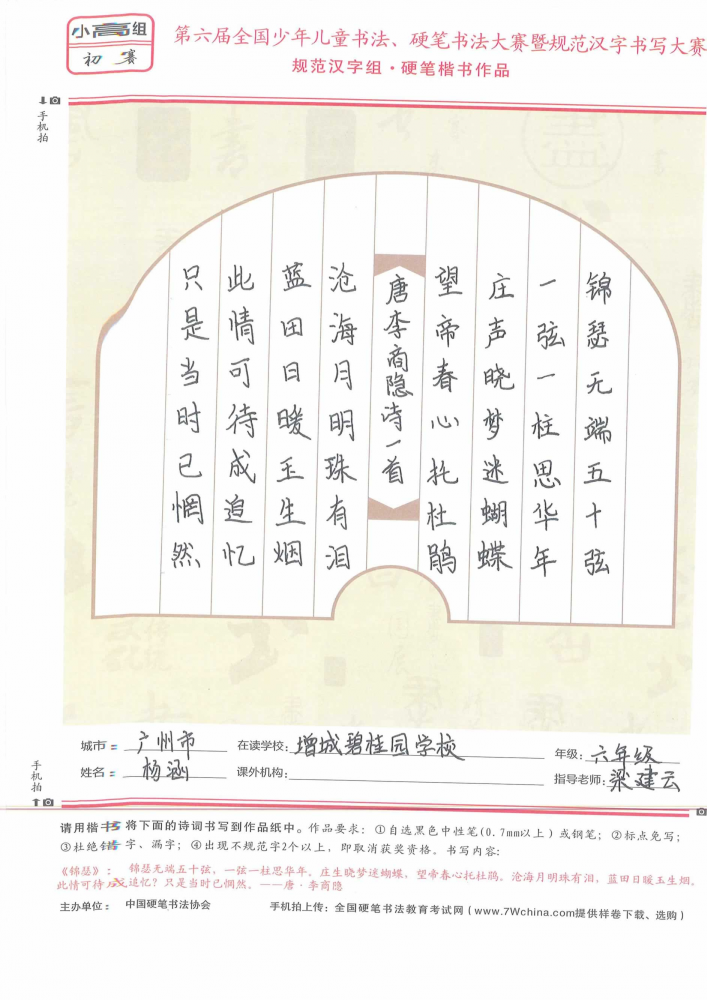 小高组
初赛
第六届全国少年儿童书法、硬笔书法大赛暨规范汉字书写大赛
规范汉字组·硬笔楷书作品
手机拍
锦瑟无端五十弦
一弦一柱思华年
庄声晓梦迷蝴蝶
望帝春心托杜鹃
唐李商隐诗一首
沧海月明珠有泪
蓝田日暖玉生烟
此情可待成追忆
只是当时已惘然
城市：广州市
在读学校：增城碧桂园学校
年级：六年级
姓名：杨涵
课外机构：
指导老师：梁建云
手机拍
请用楷书将下面的诗词书写到作品纸中。作品要求：①自选黑色中性笔(0.7mm以上）或钢笔；②标点免写；
③杜绝错字、漏字；④出现不规范字2个以上，即取消获奖资格。书写内容：
《锦瑟》：锦瑟无端五十弦，一弦一柱思华年。庄生晓梦迷蝴蝶，望帝春心托杜鹃。沧海月明珠有泪，蓝田日暖玉生烟，
此情可待成追忆？只是当时已惘然。——唐·李商隐
主办单位：中国硬笔书法协会
手机拍上传：全国硬笔书法教育考试网（www.7Wchina.com提供样卷下载、选购）